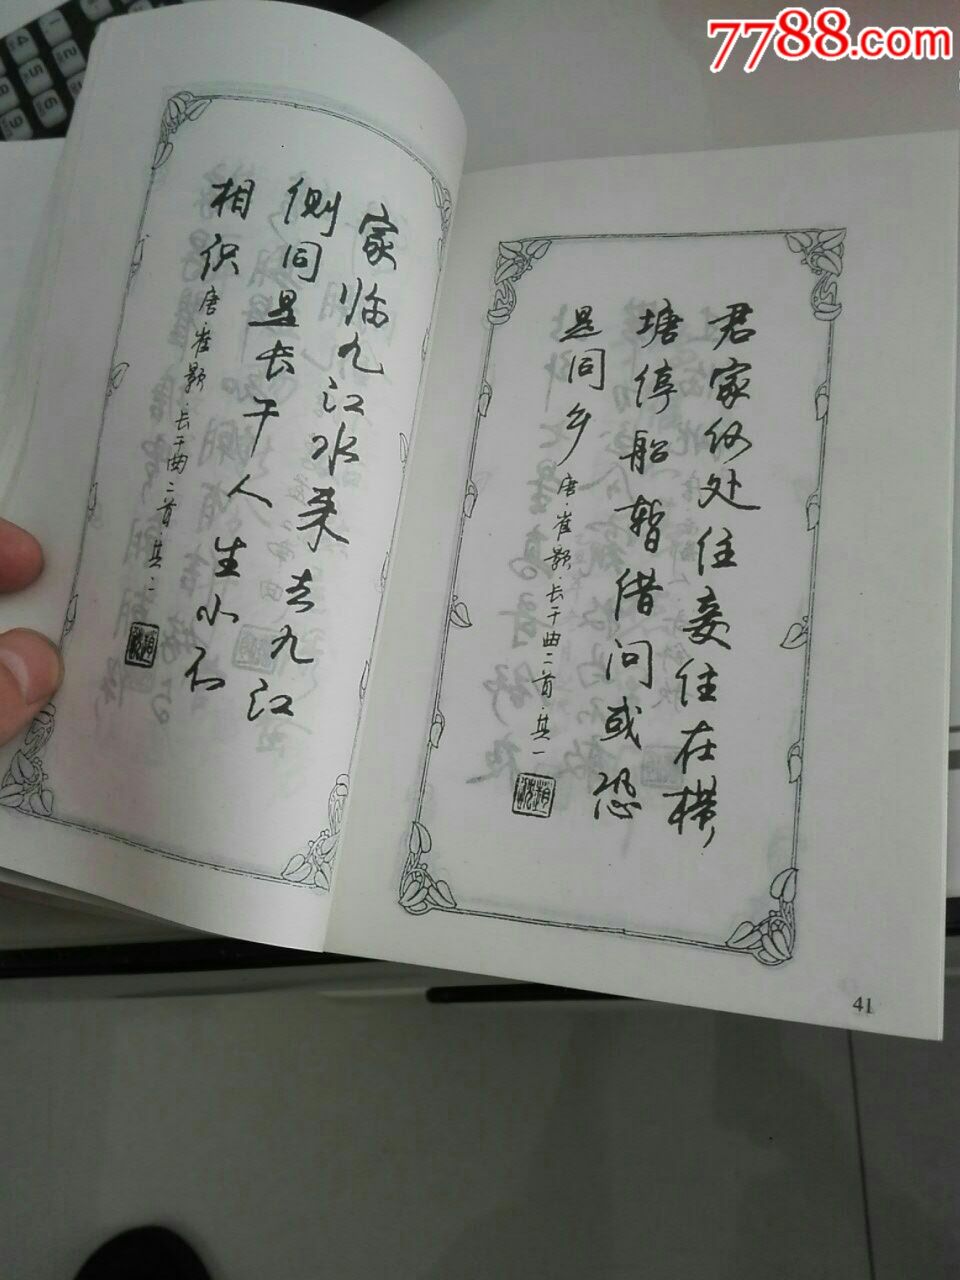 7788.com
君家何处住妾住在横
塘停船暂借问或恐
是同乡
唐·崔颢·长干曲二首·其一
家临九江水来去九江
侧同是长干人生小不
相识
唐·崔颢·长干曲二首·其二
41